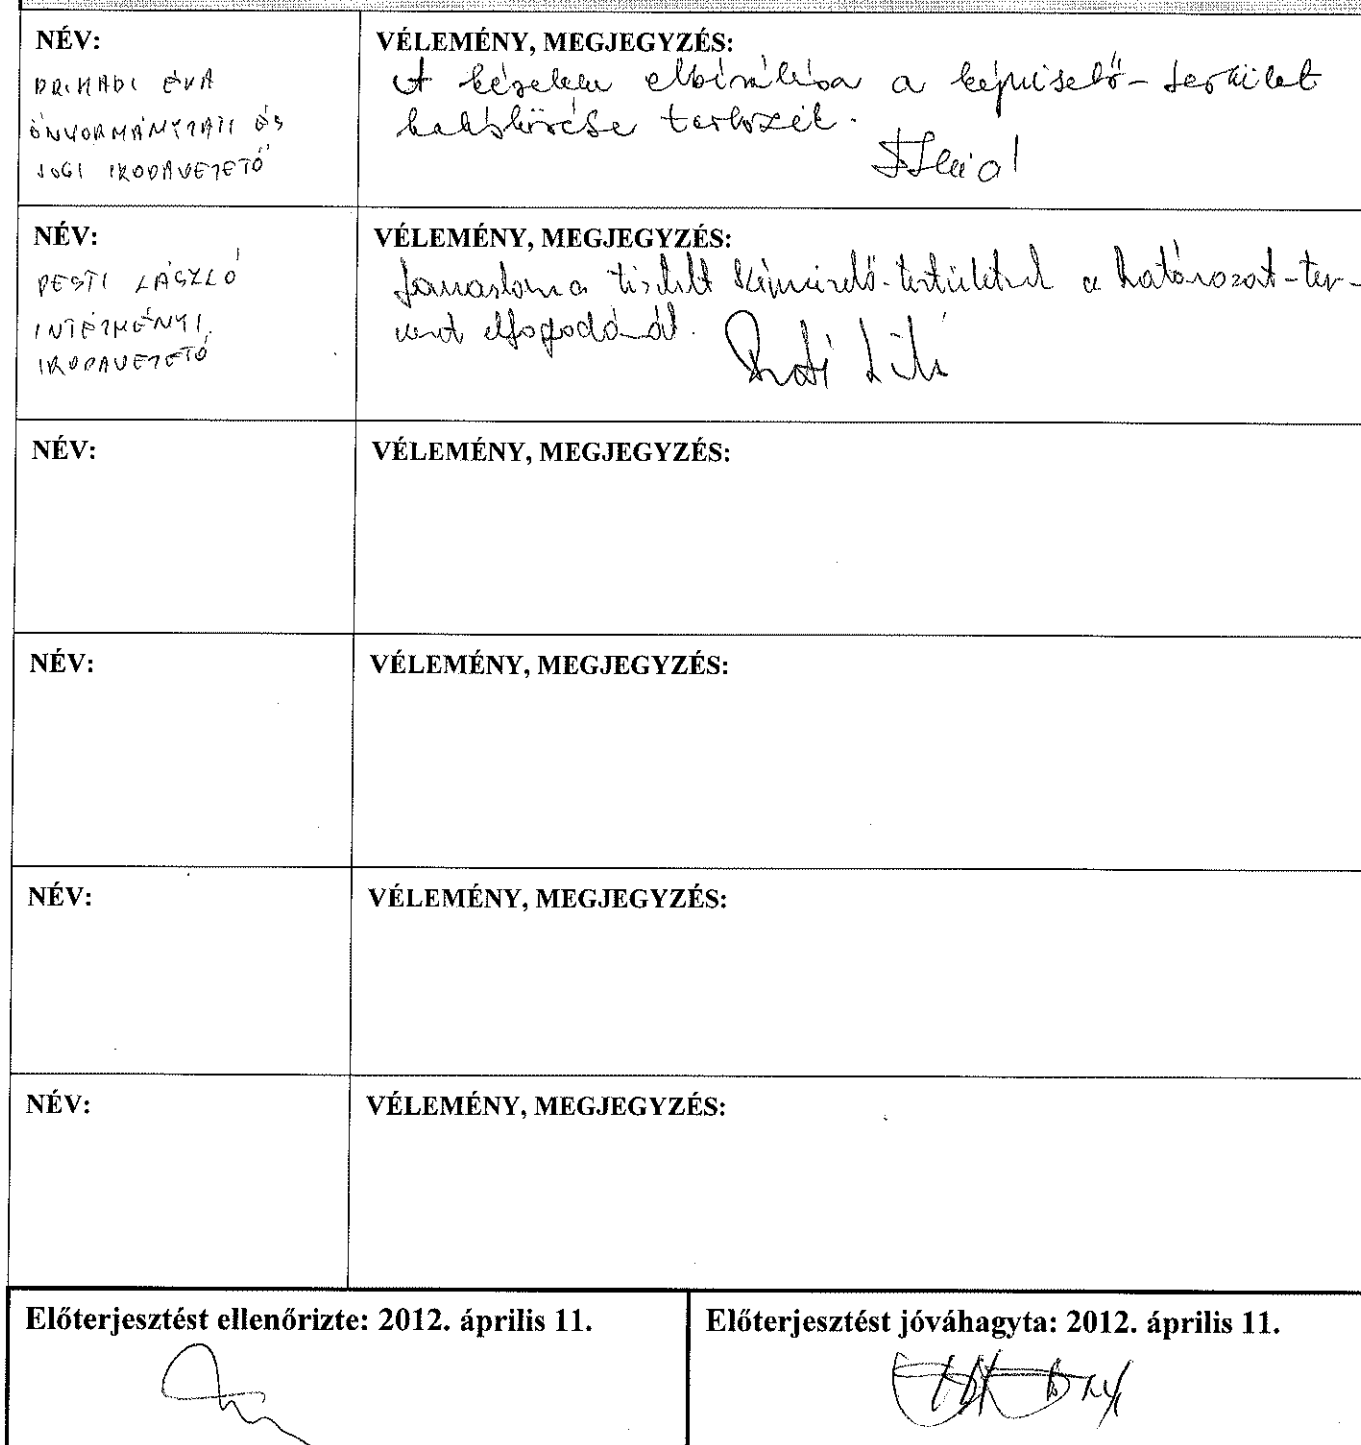 NÉV:
DR. HADI ÉVA
ÖNKORMÁNYZATI ÉS
JOGI IRODAVEZETŐ
VÉLEMÉNY, MEGJEGYZÉS:
A kérelem elbírálása a képviselő-testület
hatáskörébe tartozik.
NÉV:
PESTI LÁSZLÓ
INTÉZMÉNYI
IRODAVEZETŐ
VÉLEMÉNY, MEGJEGYZÉS:
Javaslom a tisztelt Képviselő-testületnek a határozat-ter-
vezet elfogadását.
NÉV:
VÉLEMÉNY, MEGJEGYZÉS:
NÉV:
VÉLEMÉNY, MEGJEGYZÉS:
NÉV:
VÉLEMÉNY, MEGJEGYZÉS:
NÉV:
VÉLEMÉNY, MEGJEGYZÉS:
Előterjesztést ellenőrizte: 2012. április 11.
Előterjesztést jóváhagyta: 2012. április 11.